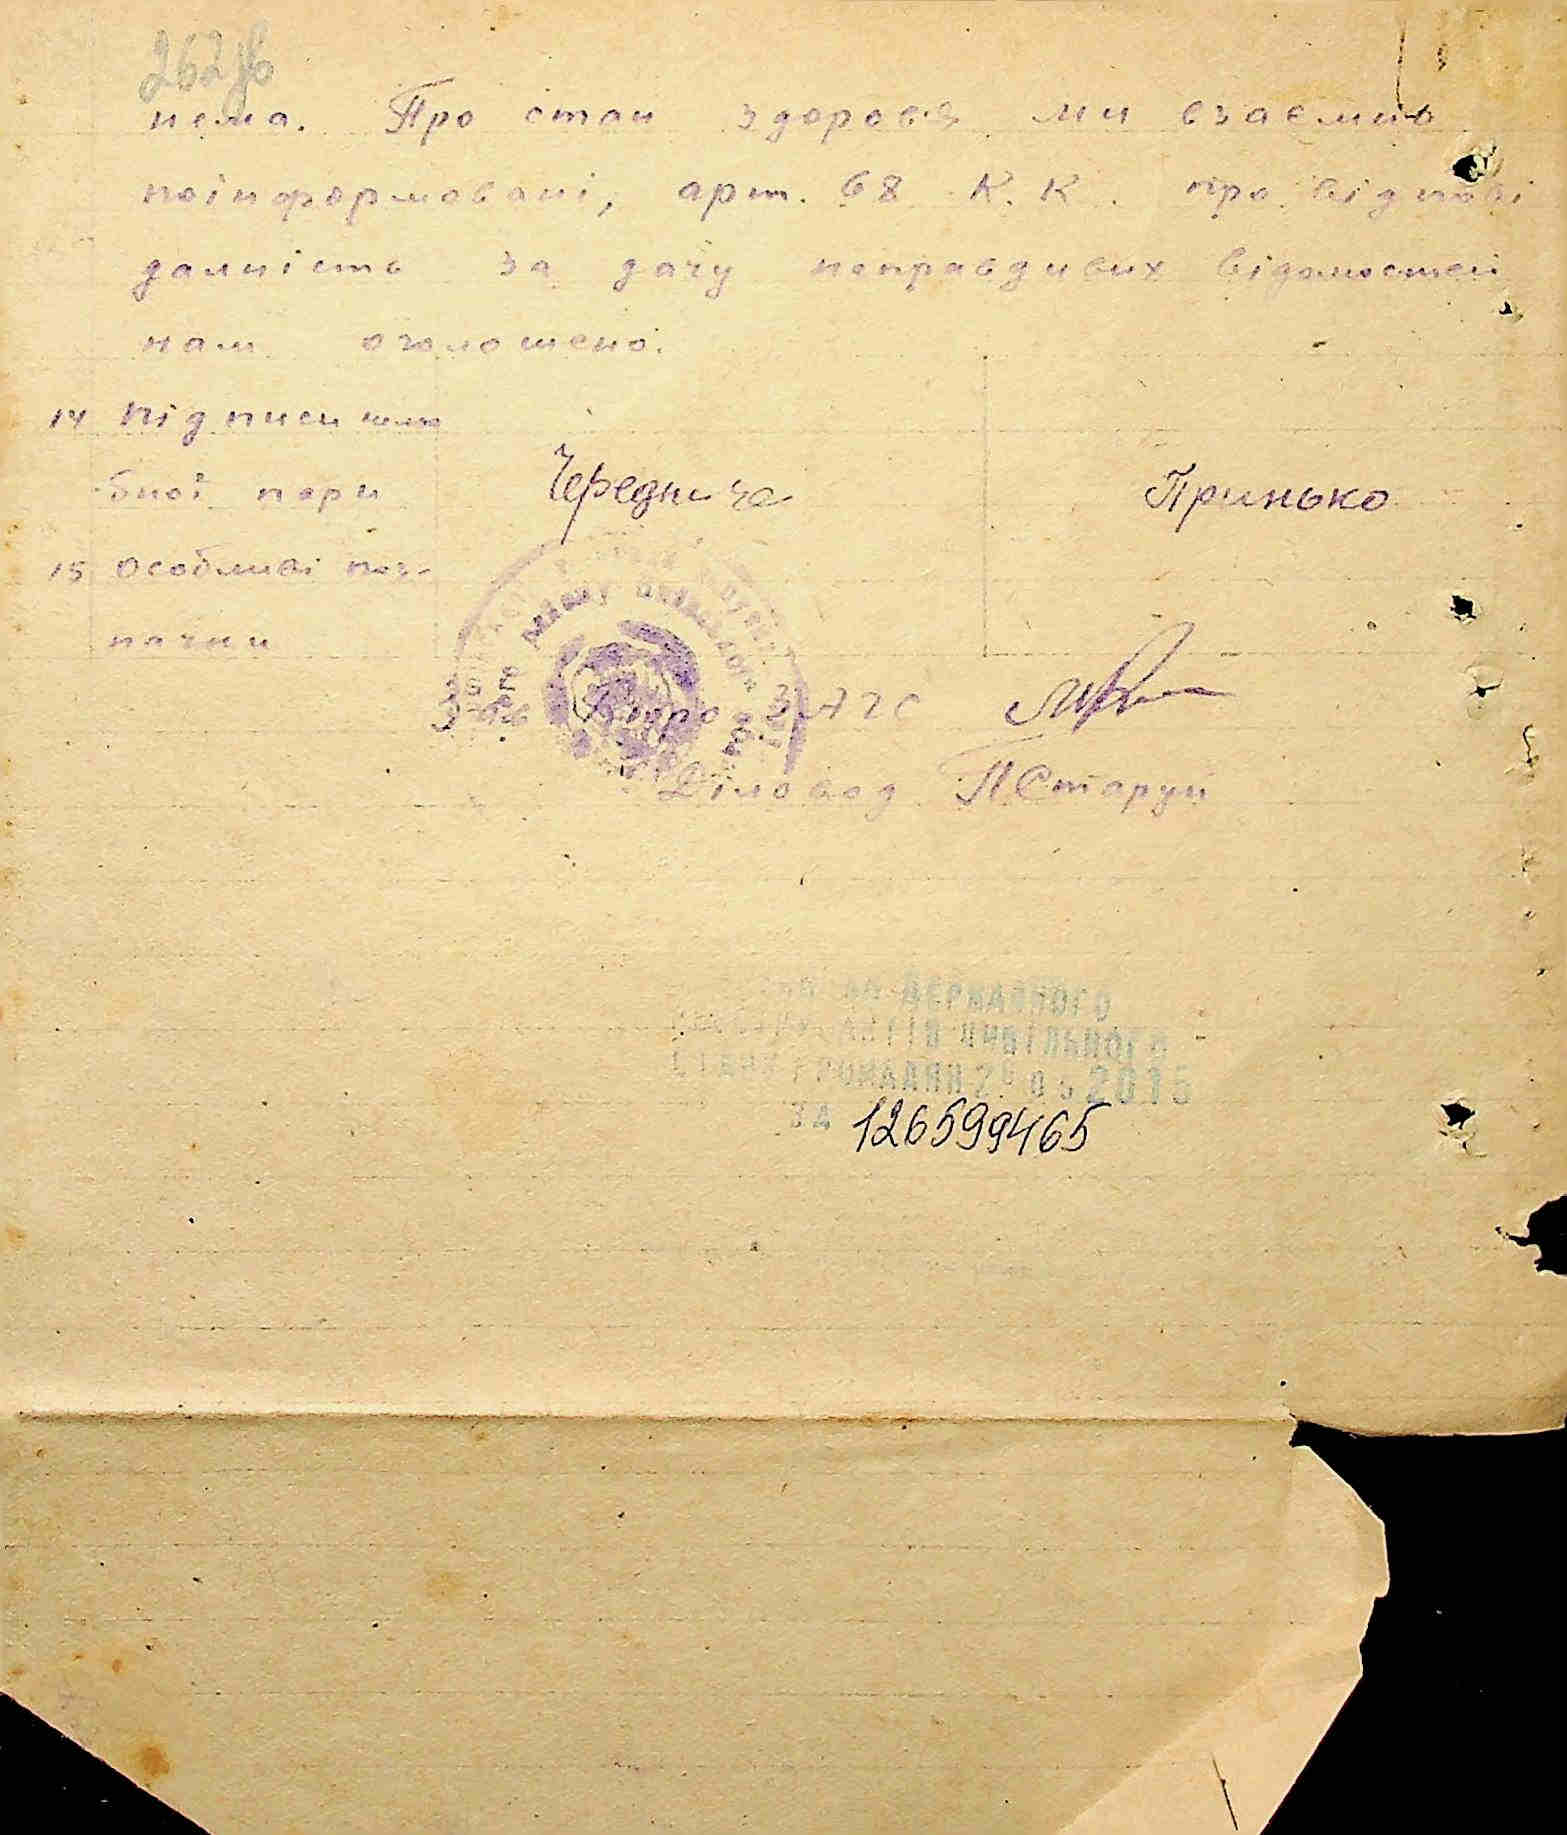 262
нема. Про стан здоровя ми взаємно
поінформовані, арт. 68 К.К. про відпові
дальність за дачу неправдивих відомостей
нам оголошено.
14 Підписи шлю
бної пари Чередниче Принько
15 Особливі поз-
начки
Бюро ЗАГС
Діловод П Старун
ДЕРЖАВНОГО
АКТІВ ЦИВІЛЬНОГО
СТАНУ ГРОМАДЯН 2015
ЗА 126599465